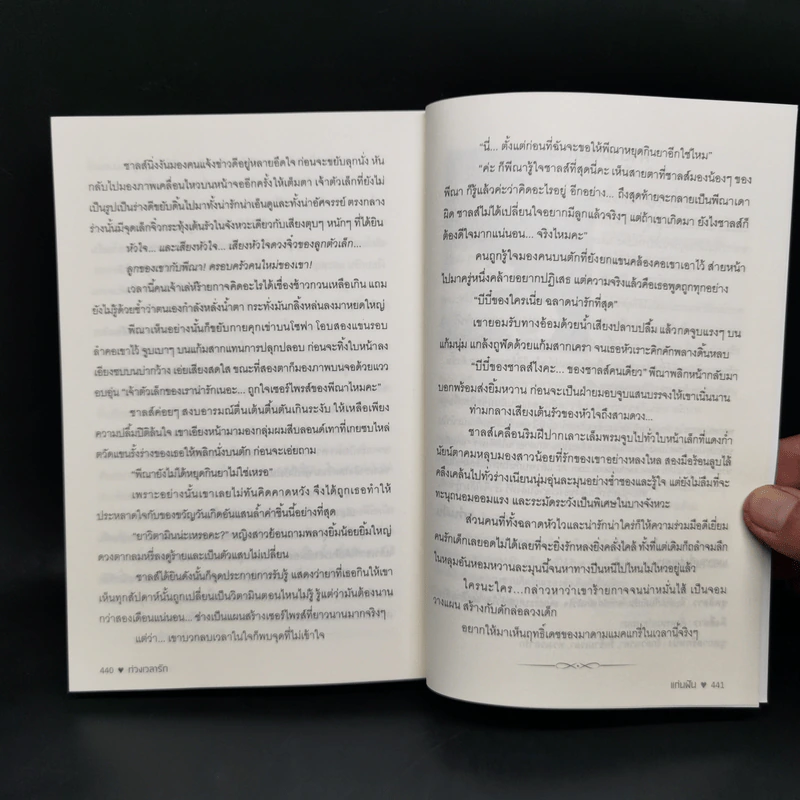 ชาลส์นิ่งงันมองคนแจ้งข่าวดีอยู่หลายอึดใจ ก่อนจะขยับลุกนั่ง หัน
กลับไปมองภาพเคลื่อนไหวบนหน้าจออีกครั้งให้เต็มตา เจ้าตัวเล็กที่ยังไม่
เป็นรูปเป็นร่างดีขยับดิ้นไปมาทั้งน่ารักน่าเอ็นดูและทั้งน่าอัศจรรย์ ตรงกลาง
ร่างนั้นมีจุดเล็กจิ๋วกระตุ้งเต้นรัวในจังหวะเดียวกับเสียงตุบๆ หนักๆ ที่ได้ยิน
หัวใจ... และเสียงหัวใจ... เสียงหัวใจดวงจิ๋วของลูกตัวเล็ก...
ลูกของเขากับพีณา! ครอบครัวคนใหม่ของเขา!
เวลานี้คนเจ้าเล่ห์ร้ายกาจคิดอะไรได้เชื่องช้ากว่าคนเหลือเกิน แถม
ยังไม่รู้ด้วยซ้ำว่าตนเองกำลังหลั่งน้ำตา กระทั่งมันกลิ้งหล่นลงมาหยดใหญ่
พีณาเห็นอย่างนั้นก็ขยับกายคุกเข่าบนโซฟา โอบสองแขนรอบ
ลำคอเขาไว้ จูบเบาๆ บนแก้มสากแทนการปลุกปลอบ ก่อนจะทิ้งใบหน้าลง
เอียงซบบนบ่ากว้าง เอ่ยเสียงสดใส ขณะที่สองตาก็มองภาพบนจอด้วยแวว
อบอุ่น “เจ้าตัวเล็กของเราน่ารักเนอะ... ถูกใจเซอร์ไพรส์ของพีณาไหมคะ”
ชาลส์ค่อยๆ สงบอารมณ์ตื่นเต้นตื้นตันเกินระงับ ให้เหลือเพียง
ความปลื้มปีติล้นใจ เขาเอียงหน้ามามองกลุ่มผมสีบลอนด์เทาที่เกยซบไหล่
ตวัดแขนรั้งร่างของเธอให้พลิกนั่งบนตัก ก่อนจะเอ่ยถาม
“พีณายังไม่ได้หยุดกินยาไม่ใช่เหรอ”
เพราะอย่างนั้นเขาเลยไม่ทันคิดคาดหวัง จึงได้ถูกเธอทำให้
ประหลาดใจกับของขวัญวันเกิดอันแสนล้ำค่าชิ้นนี้อย่างที่สุด
“ยาวิตามินน่ะเหรอคะ?” หญิงสาวย้อนถามพลางยิ้มน้อยยิ้มใหญ่
ดวงตากลมหรี่ลงดูร้ายและเป็นตัวแสบไม่เปลี่ยน
ชาลส์ได้ยินดังนั้นก็จุดประกายการรับรู้ แสดงว่ายาที่เธอกินให้เขา
เห็นทุกสัปดาห์นั้นถูกเปลี่ยนเป็นวิตามินตอนไหนไม่รู้ รู้แต่ว่ามันต้องนาน
กว่าสองเดือนแน่นอน... ช่างเป็นแผนสร้างเซอร์ไพรส์ที่ยาวนานมากจริงๆ
แต่ว่า... เขาบวกลบเวลาในใจก็พบจุดที่ไม่เข้าใจ
440 ♥ ห่วงเวลารัก
“นี่... ตั้งแต่ก่อนที่ฉันจะขอให้พีณาหยุดกินยาอีกใช่ไหม”
“ค่ะ ก็พีณารู้ใจชาลส์ที่สุดนี่คะ เห็นสายตาที่ชาลส์มองน้องๆ ของ
พีณา ก็รู้แล้วค่ะว่าคิดอะไรอยู่ อีกอย่าง... ถึงสุดท้ายจะกลายเป็นพีณาเดา
ผิด ชาลส์ไม่ได้เปลี่ยนใจอยากมีลูกแล้วจริงๆ แต่ถ้าเขาเกิดมา ยังไงชาลส์ก็
ต้องดีใจมากแน่นอน... จริงไหมคะ”
คนถูกรู้ใจมองคนบนตักที่ยังยกแขนคล้องคอเขาเอาไว้ ส่ายหน้า
ไปมาครู่หนึ่งคล้ายอยากปฏิเสธ แต่ความจริงแล้วคือเธอพูดถูกทุกอย่าง
“บีบี๋ของใครเนี่ย ฉลาดน่ารักที่สุด”
เขายอมรับทางอ้อมด้วยน้ำเสียงปลาบปลื้ม แล้วกดจูบแรงๆ บน
แก้มนุ่ม แกล้งถูฟัดด้วยแก้มสากเครา จนเธอหัวเราะคิกคักพลางดิ้นหลบ
“บีบี๋ของชาลส์ไงคะ... ของชาลส์คนเดียว” พีณาพลิกหน้ากลับมา
บอกพร้อมส่งยิ้มหวาน ก่อนจะเป็นฝ่ายมอบจูบแสนบรรจงให้เขาเนิ่นนาน
ท่ามกลางเสียงเต้นรัวของหัวใจถึงสามดวง...
ชาลส์เคลื่อนริมฝีปากเลาะเล็มพรมจูบไปทั่วใบหน้าเล็กที่แดงก่ำ
นัยน์ตาคมหลุบมองสาวน้อยที่รักของเขาอย่างหลงใหล สองมือร้อนลูบไล้
คลึงเคล้นไปทั่วร่างเนียนนุ่มอุ่นละมุนอย่างช่ำชองและรู้ใจ แต่ยังไม่ลืมที่จะ
ทะนุถนอมออมแรง และระมัดระวังเป็นพิเศษในบางจังหวะ
ส่วนคนที่ทั้งฉลาดหัวไวและน่ารักน่าใคร่ก็ให้ความร่วมมือดีเยี่ยม
คนรักเด็กเลยอดไม่ได้เลยที่จะยิ่งรักหลงยิ่งคลั่งไคล้ ทั้งที่แต่เดิมก็ถลำจมลึก
ในหลุมอันหอมหวานละมุนนี้จนหาทางปีนหนีไปไหนไม่ไหวอยู่แล้ว
ใครนะใคร...กล่าวหาว่าเขาร้ายกาจจนน่าหมั่นไส้ เป็นจอม
วางแผน สร้างกับดักล่อลวงเด็ก
อยากให้มาเห็นฤทธิ์เดชของมาดามแมคแกรี่ในเวลานี้จริงๆ
แก่นฝัน ♥ 441